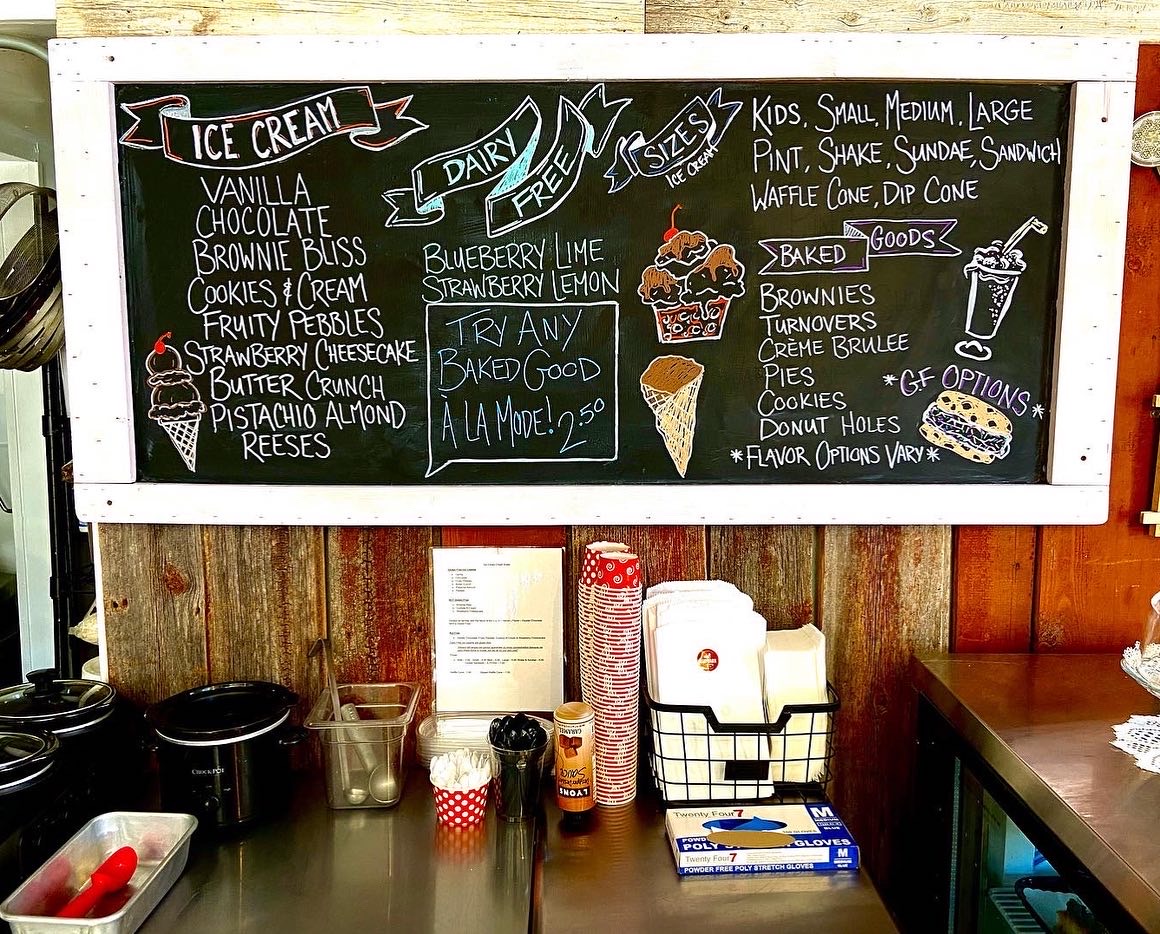 ICE CREAM
VANILLA
CHOCOLATE
BROWNIE BLISS
COOKIES & CREAM
FRUITY PEBBLES
STRAWBERRY CHEESECAKE
BUTTER CRUNCH
PISTACHIO ALMOND
REESES
DAIRY
FREE
BLUEBERRY LIME
STRAWBERRY LEMON
TRY ANY
BAKED GOOD
À LA MODE! 2.50
SIZES
ICE CREAM
KIDS, SMALL, MEDIUM, LARGE
PINT, SHAKE, SUNDAE, SANDWICH
WAFFLE CONE, DIP CONE
BAKED GOODS
BROWNIES
TURNOVERS
CRÈME BRULEE
PIES
COOKIES
DONUT HOLES
*FLAVOR OPTIONS VARY*
*GF OPTIONS*
CROCK POT
LYONS
CARAMEL
Twenty Four7
M
POLY STRETCH GLOVES
Twenty Four7
POWDER FREE POLY STRETCH GLOVES
M
BLUE